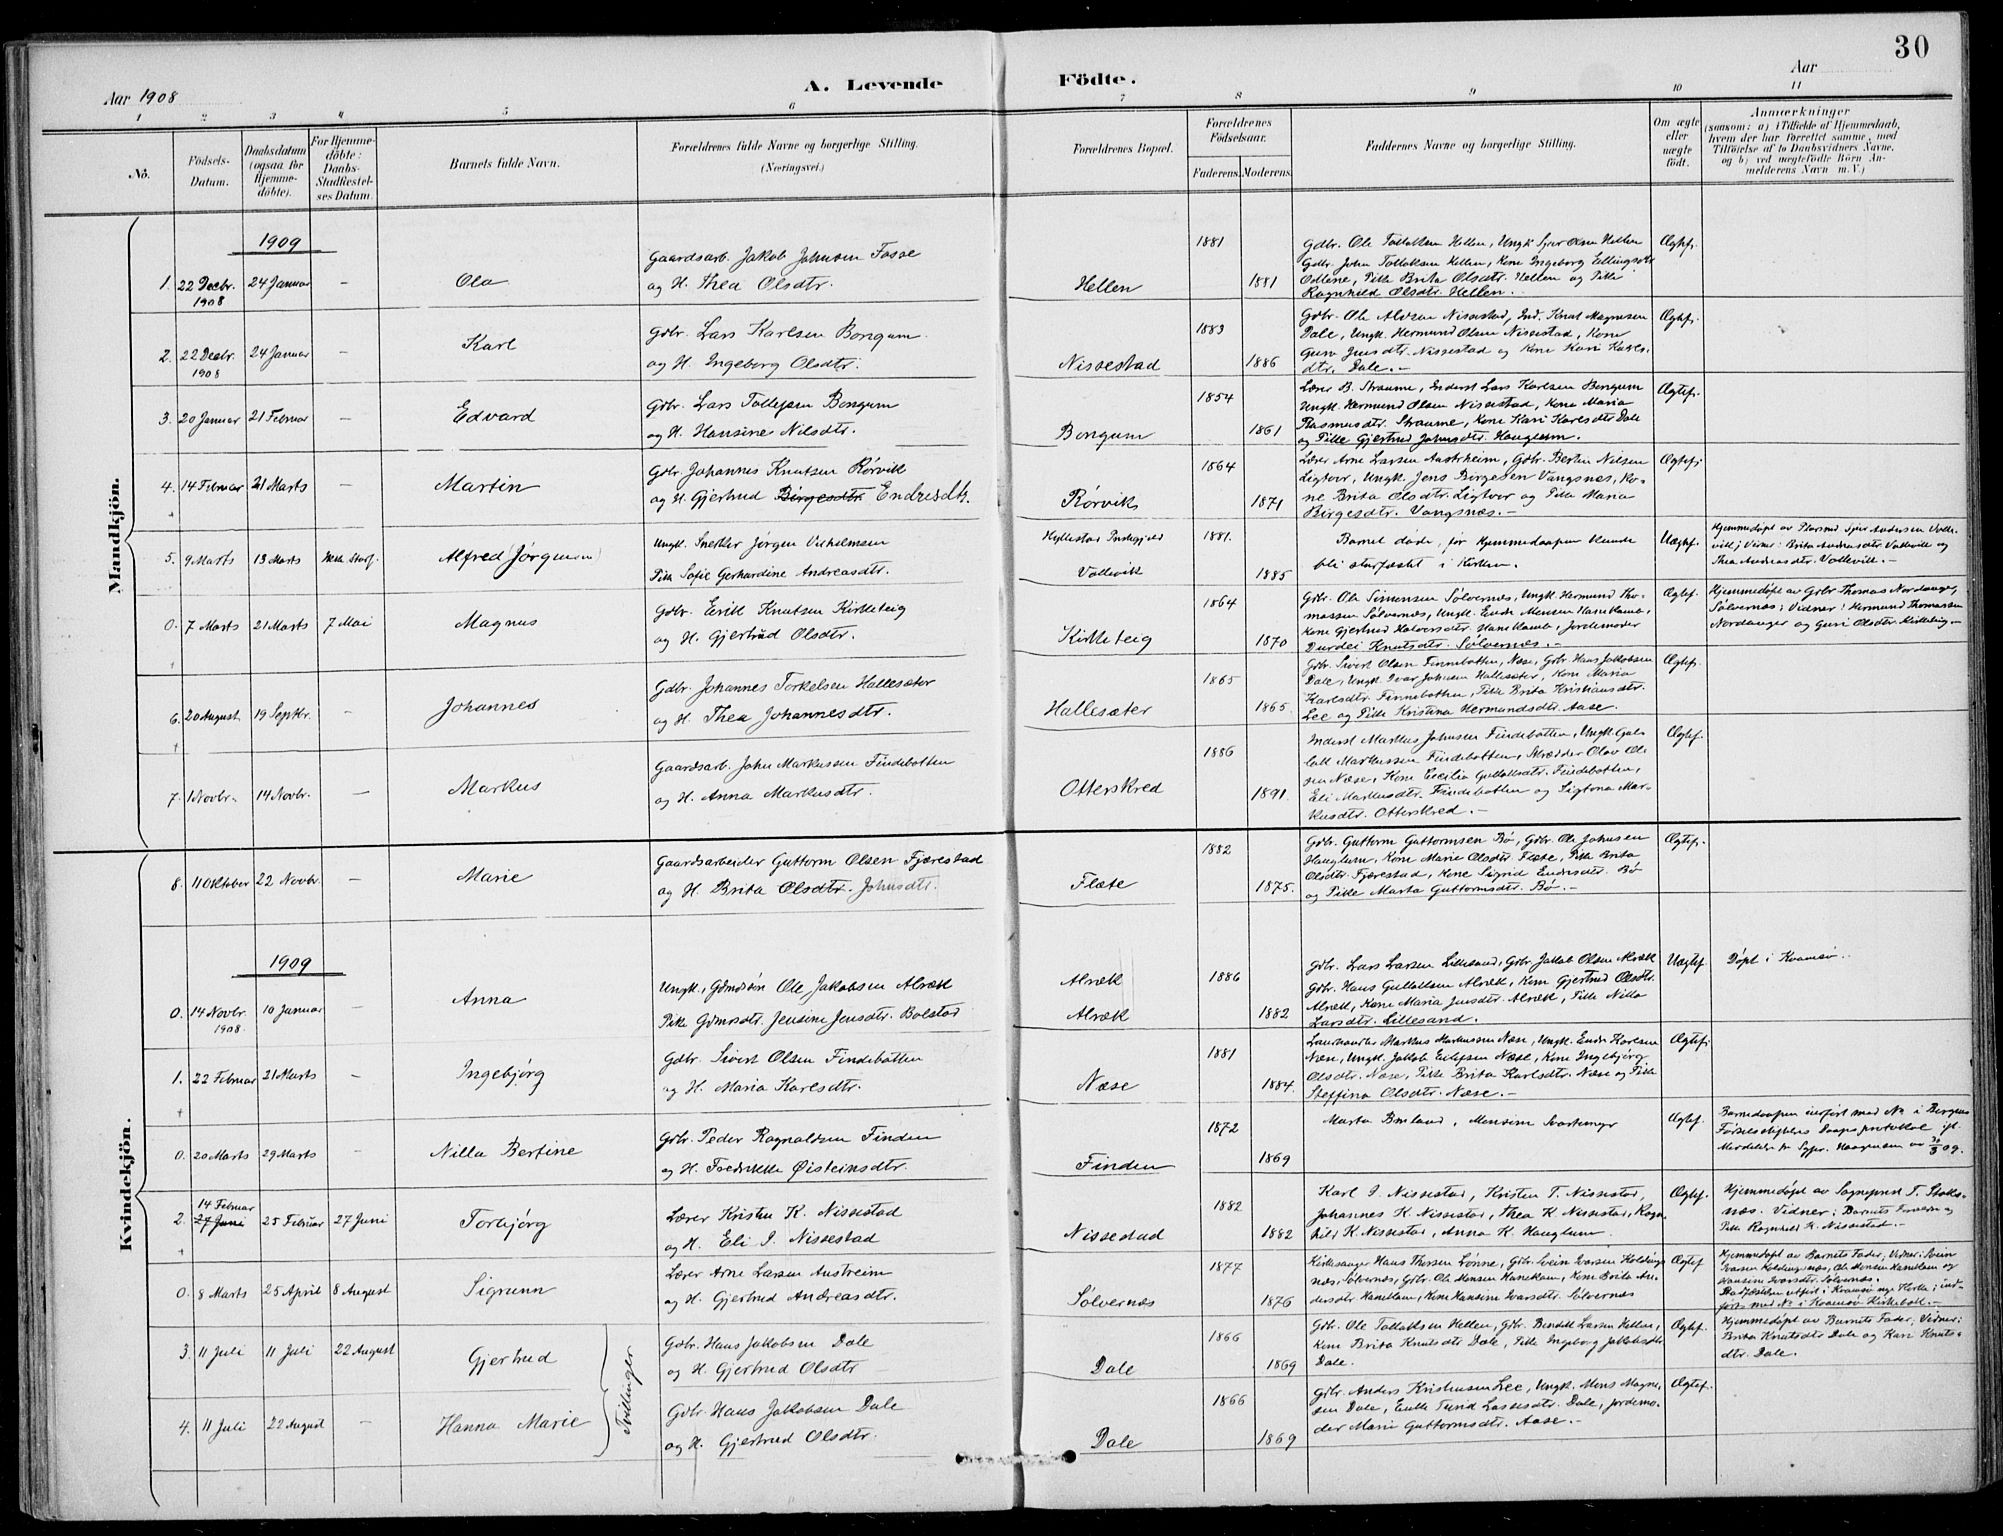 30
Aar 1908
A. Levende
Födte.
Aar
1 2 3 4 5 6 7 8 9 10 11
No.
Födsels-
Datum.
Daabsdatum
(ogsaa for
Hjemme-
döbte).
For Hjemme-
döbte:
Daabs-
Stadfæstel-
ses Datum.
Barnets fulde Navn.
Forældrenes fulde Navne og borgerlige Stilling.
(Næringsvei.)
Forældrenes Bopæl.
Forældrenes
Födselsaar.
Faderens. Moderens.
Faddernes Navne og borgerlige Stilling.
Om ægte
eller
uægte
födt.
Anmærkninger
(saasom: a) i Tilfælde af Hjemmedaab,
hvem der har forrettet samme, med
Tilföielse af to Daabsvidners Navne,
og b) ved uægtefödte Börn An-
melderens Navn m. V.)
Mandkjön.
1909
1. 22 Decbr. 1908 24 Januar — Ola
Gaardsarb. Jakob Johnsen Fosse
og H. Thea Olsdtr.
Hellen 1881 1881
Gdbr. Ole Tollaksen Hellen, Ungk. Sjur Olsen Hellen
Gdbr. John Tollaksen Hellen, Kone Ingeborg Ellingsdtr.
Odlene, Pike Brita Olsdtr. Hellen og Pike
Ragnhild Olsdtr. Hellen.
Ægtef.
2. 22 Decbr. 1908 24 Januar — Karl
Gdbr. Lars Karlsen Bongum
og H. Ingeborg Olsdtr.
Nissestad 1883 1886
Gdbr. Ole Nissestad, Ind. Knut Magnesen
Dale, Ungk. Hermund Olsen Nissestad, Kone
Guro Jensdtr. Nissestad og Kone Kari Karls-
dtr. Dale.
Ægtef.
3. 20 Januar 21 Februar — Edvard
Gdbr. Lars Tollefsen Bongum
og H. Hansine Nilsdtr.
Bongum 1854 1861
Lærer B. Straume, Inderst Lars Karlsen Bongum
Ungk. Hermund Olsen Nissestad, Kone Maria
Rasmusdtr. Straume, Kone Kari Karlsdtr. Dale
og Pike Gjertrud Johnsdtr. Hauglum.
Ægtef.
4. 14 Februar 21 Marts — Martin
Gdbr. Johannes Knutsen Rørvik
og H. Gjertrud Birgesdtr. Endresdtr.
Rørvik 1864 1871
Lærer Arne Larsen Austrheim, Gdbr. Bertin Nilsen
Ligtvor, Ungk. Jens Birgesen Vangsnes, Ko-
ne Brita Olsdtr. Ligtvor og Pike Maria
Birgesdtr. Vangsnæs.
Ægtef.
5. 9 Marts 13 Marts Alfred (Jørgensen)
Ungk. Snekker Jørgen Vilhelmsen
Pike Sofie Gerhardine Andreasdtr.
Hyllestad
Vollevik 1881. 1885
Barnet døde, før Hjemmedaapen kunde
bli stadfæstet i Kirken.
Uægtef.
Hjemmedøpt av Sjur Andersen Volle-
vik; Vidner: Brita Andreasdtr. Vollevik og
Thea Andreasdtr. Vollevik.
0. 7 Marts 21 Marts 7 Mai Magnus
Gdbr. Eirik Knutsen Kirkteig
og H. Gjertrud Olsdtr.
Kirkteig 1864 1870
Gdbr. Ole Simonsen Sølvernes, Ungk. Hermund Tho-
massen Sølvernes, Ungk. Endre Monsen Hanekamb,
Kone Gjertrud Halvorsdtr. Hanekamb, Jordemoder
Durdei Knutsdtr. Sølvernes.
Ægtef.
Hjemmedøpt av Gdbr. Thomas Nordanger,
Sølvernes; Vidner: Hermund Thomassen
Nordanger og Guri Olsdtr. Kirkteig
6. 20 August 19 Septbr. — Johannes
Gdbr. Johannes Torkelsen Hallesæter
og H. Thea Johannesdtr.
Hallesæter 1865 1865.
Gdbr. Sivert Olsen Finnebotten, Næse, Gdbr. Hans Jakobsen
Dale, Ungk. Ivar Johnsen Hallesæter, Kone Maria
Karlsdtr. Finnebotten, Pike Brita Kristiansdtr.
Lee og Pike Kristina Hermundsdtr. Aase.
Ægtef.
7. 1 Novbr. 14 Novbr. — Markus
Gaardsarb. John Markussen Findebotten
og H. Anna Markusdtr.
Otterskred 1886 1891.
Inderst Markus Johnsen Findebotten, Ungk. Gul-
lak Markussen Findebotten, Skrædder Olav Ol-
sen Næse, Kone Cecilia Gullaksdtr. Findebotten,
Eli Markusdtr. Findebotten og Sigtona Mar-
kusdtr. Otterskred.
Ægtef.
Kvindekjön.
8. 11 Oktober 22 Novbr. — Marie
Gaardsarbeider Guttorm Olsen Fjærestad
og H. Brita Olsdtr. Johnsdtr.
Flæte 1882 1875.
Gdbr. Guttorm Guttormsen Bø, Gdbr. Ole Johnsen
Hauglum, Kone Marie Olsdtr. Flæte, Pike Brita
Olsdtr. Fjærestad, Kone Sigrid Endresdtr. Bø
og Pike Marta Guttormsdtr. Bø.
Ægtef.
1909
0. 14 Novbr. 1908. 10 Januar — Anna
Ungk., Gdmdsøn Ole Jakobsen Alræk
Pike Gdmdsdtr. Jensine Jensdtr. Bolstad
Alræk
Alræk 1886 1882
Gdbr. Lars Larsen Lillesand, Gdbr. Jakob Olsen Alræk
Gdbr. Hans Gullaksen Alræk, Kone Gjertrud Olsdtr.
Alræk, Kone Maria Jensdtr. Alræk, Pike Nilla
Larsdtr. Lillesand.
Uægtef.
Døpt i Kvamsø.
1. 22 Februar 21 Marts — Ingebjørg
Gdbr. Sivert Olsen Findebotten
og H. Maria Karlsdtr.
Næse 1881 1884.
Markus Markussen Næse, Ungk. Endre Karlsen
Næse, Ungk. Jakob Eilefsen Næse, Kone Ingebjørg
Olsdtr. Næse, Pike Brita Karlsdtr. Næse og Pike
Steffina Olsdtr. Næse.
Ægtef.
0. 20 Marts 29 Marts Nilla Bertine
Gdbr. Peder Ragnaldsen Finden
og H. Fredrikke Øisteinsdtr.
Finden 1872 1869
Marta Bruland, Monsine
Ægtef.
Barnedaapen indført med No i Bergens
Fødselsstiftelses Daapsprotokol
2. 14 Februar 27 Juni 25 Februar 27 Juni Torbjørg
Lærer Kristen K. Nissestad
og H. Eli I. Nissestad
Nissestad 1882 1882
Karl I. Nissestad, Kristen T. Nissestad,
Johannes K. Nissestad, Thea K. Nissestad, Ragn-
hild K. Nissestad, Anna K. Hauglum.
Ægtef.
Hjemmedøpt av Sogneprest T. Stoks-
næs. Vidner: Barnets og
Pike Ragnhild K. Nissestad.
0. 8 Marts 25 April 8 August Sigrunn
Lærer Arne Larsen Austreim
og H. Gjertrud Andreasdtr.
Sølvernes 1877 1876
Kirkesanger Hans Thessen Lønne, Gdbr. Svein Ivarsen Koldings-
næs, Sølvernæs, Gdbr. Ole Monsen Hanekam, Kone Brita An-
dersdtr. Hanekam, Kone Hansine Ivarsdtr. Sølvernæs
Ægtef
Hjemmedøpt av Barnets Fader, Vidner: Svein
Ivarsen Koldingsnæs, Ole Monsen Hanekam og
Hansine Ivarsdtr. Sølvernæs.
Stadfæstelsen utført i Kvamsø nye Kirke; ind-
ført med No i Kvamsø Kirkebok.
3. 11 Juli 11 Juli 22 August Gjertrud
Tvillinger
Gdbr. Hans Jakobsen Dale
og H. Gjertrud Olsdtr
Dale 1866 1869
Gdbr. Ole Tollaksen Hellen, Gdbr. Bendik Larsen Hellen,
Kone Brita Knutsdtr. Dale, Pike Ingeborg Jakobsdtr.
Dale.
Ægtef.
Hjemmedøpt av Barnets Fader, Vidner:
Brita Knutsdtr. Dale og Kari Knuts-
dtr. Dale.
4. 11 Juli 22 August — Hanna Marie
Gdbr. Hans Jakobsen Dale
og H. Gjertrud Olsdtr.
Dale 1866 1869
Gdbr. Anders Kristensen Lee, Ungk. Mons Magne-
sen Dale, Enke Turid Lassesdtr. Dale, Jordemo-
der Mari Guttormsdtr. Aase.
Ægtef.